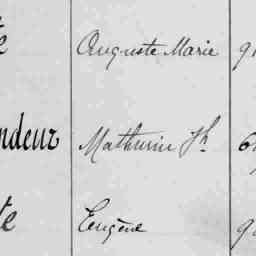 Auguste Marie
ndeur Mathurin Jh
te Eugène